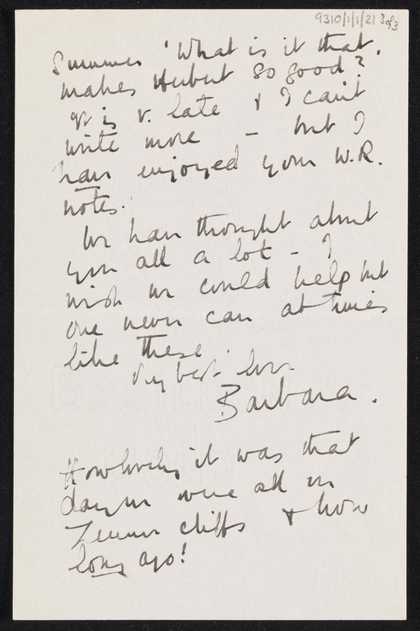 9310/1/1/21 3 of 3
Summer 'What is it that
makes Hubert so good?
It is v. late & I can't
write more – but I
have enjoyed your W.R.
notes.
We have thought about
you all a lot – I
wish we could help but
one never can at times
like these.
My best love.
Barbara.
How lovely it was that
day we were all on
Zennor cliffs & how
long ago!